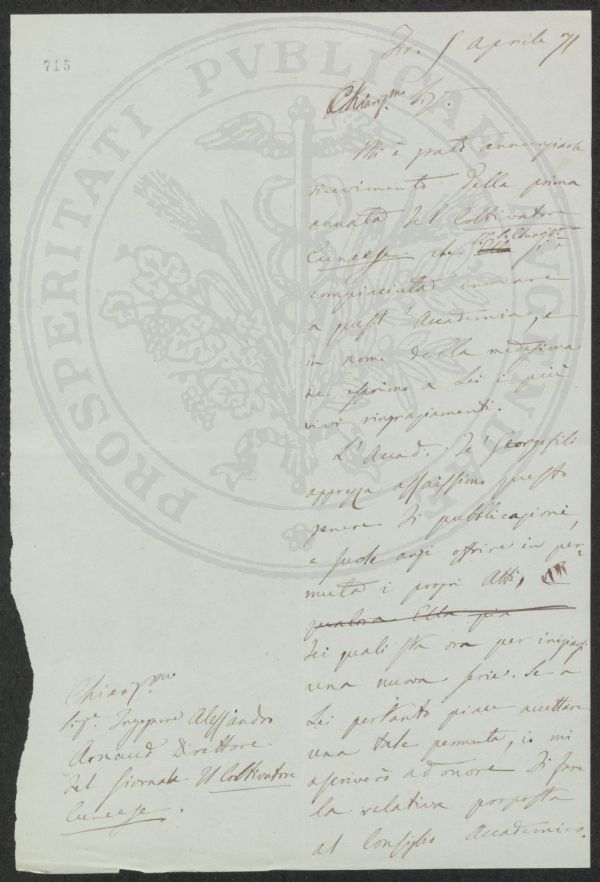 715
PROSPERITATI PVBLICAE AVGENDAE
Fir. 5 aprile 71
Chiariss.mo Sig.
Mi è grato annunziarle
ricevimento della prima
annata del Coltivatore
Cuneese che
compiaciuta inviare
a quest'Accademia, e
in nome della medesima
ne esprimo a Lei i più
vivi ringraziamenti.
L'Accad. de' Georgofili
apprezza assaissimo questo
genere di pubblicazioni,
e suole anzi offrire in per=
muta i propri Atti,
qualora Ella più
dei quali sta ora per iniziarsi
una nuova serie. Se a
Lei pertanto piace accettare
una tale permuta, io mi
ascriverò ad onore di fare
la relativa proposta
al Consiglio Accademico.
Chiariss.mo
Sig.r Ingegnere Alessandro
Arnaud Direttore
del Giornale Il Coltivatore
Cuneese.